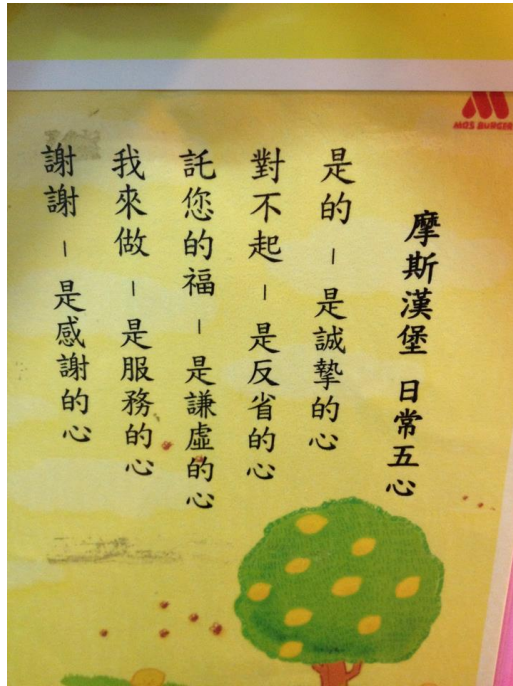 MOS BURGER
摩斯漢堡 日常五心
是的 － 是誠摯的心
對不起 － 是反省的心
託您的福 － 是謙虛的心
我來做 － 是服務的心
謝謝 － 是感謝的心